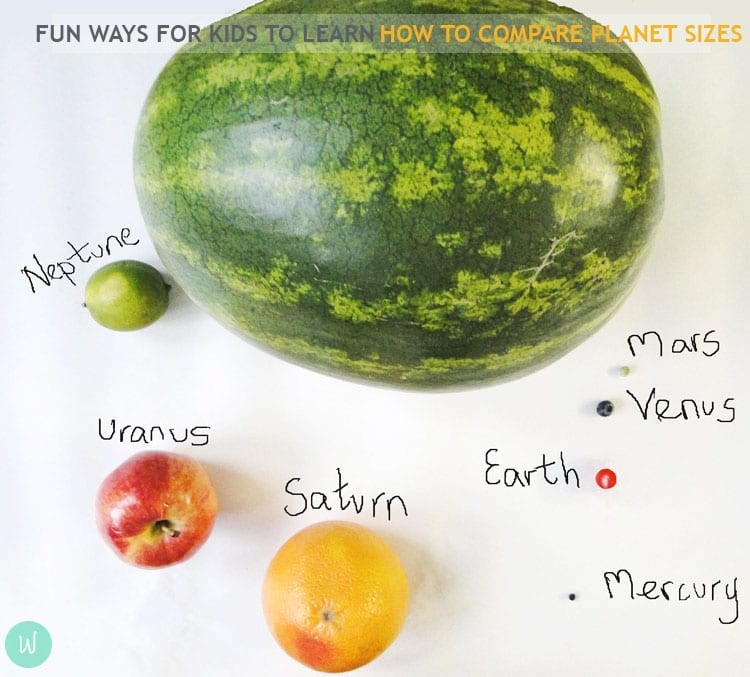 FUN WAYS FOR KIDS TO LEARN HOW TO COMPARE PLANET SIZES
Neptune
Mars
Venus
Uranus
Earth
Saturn
Mercury
W